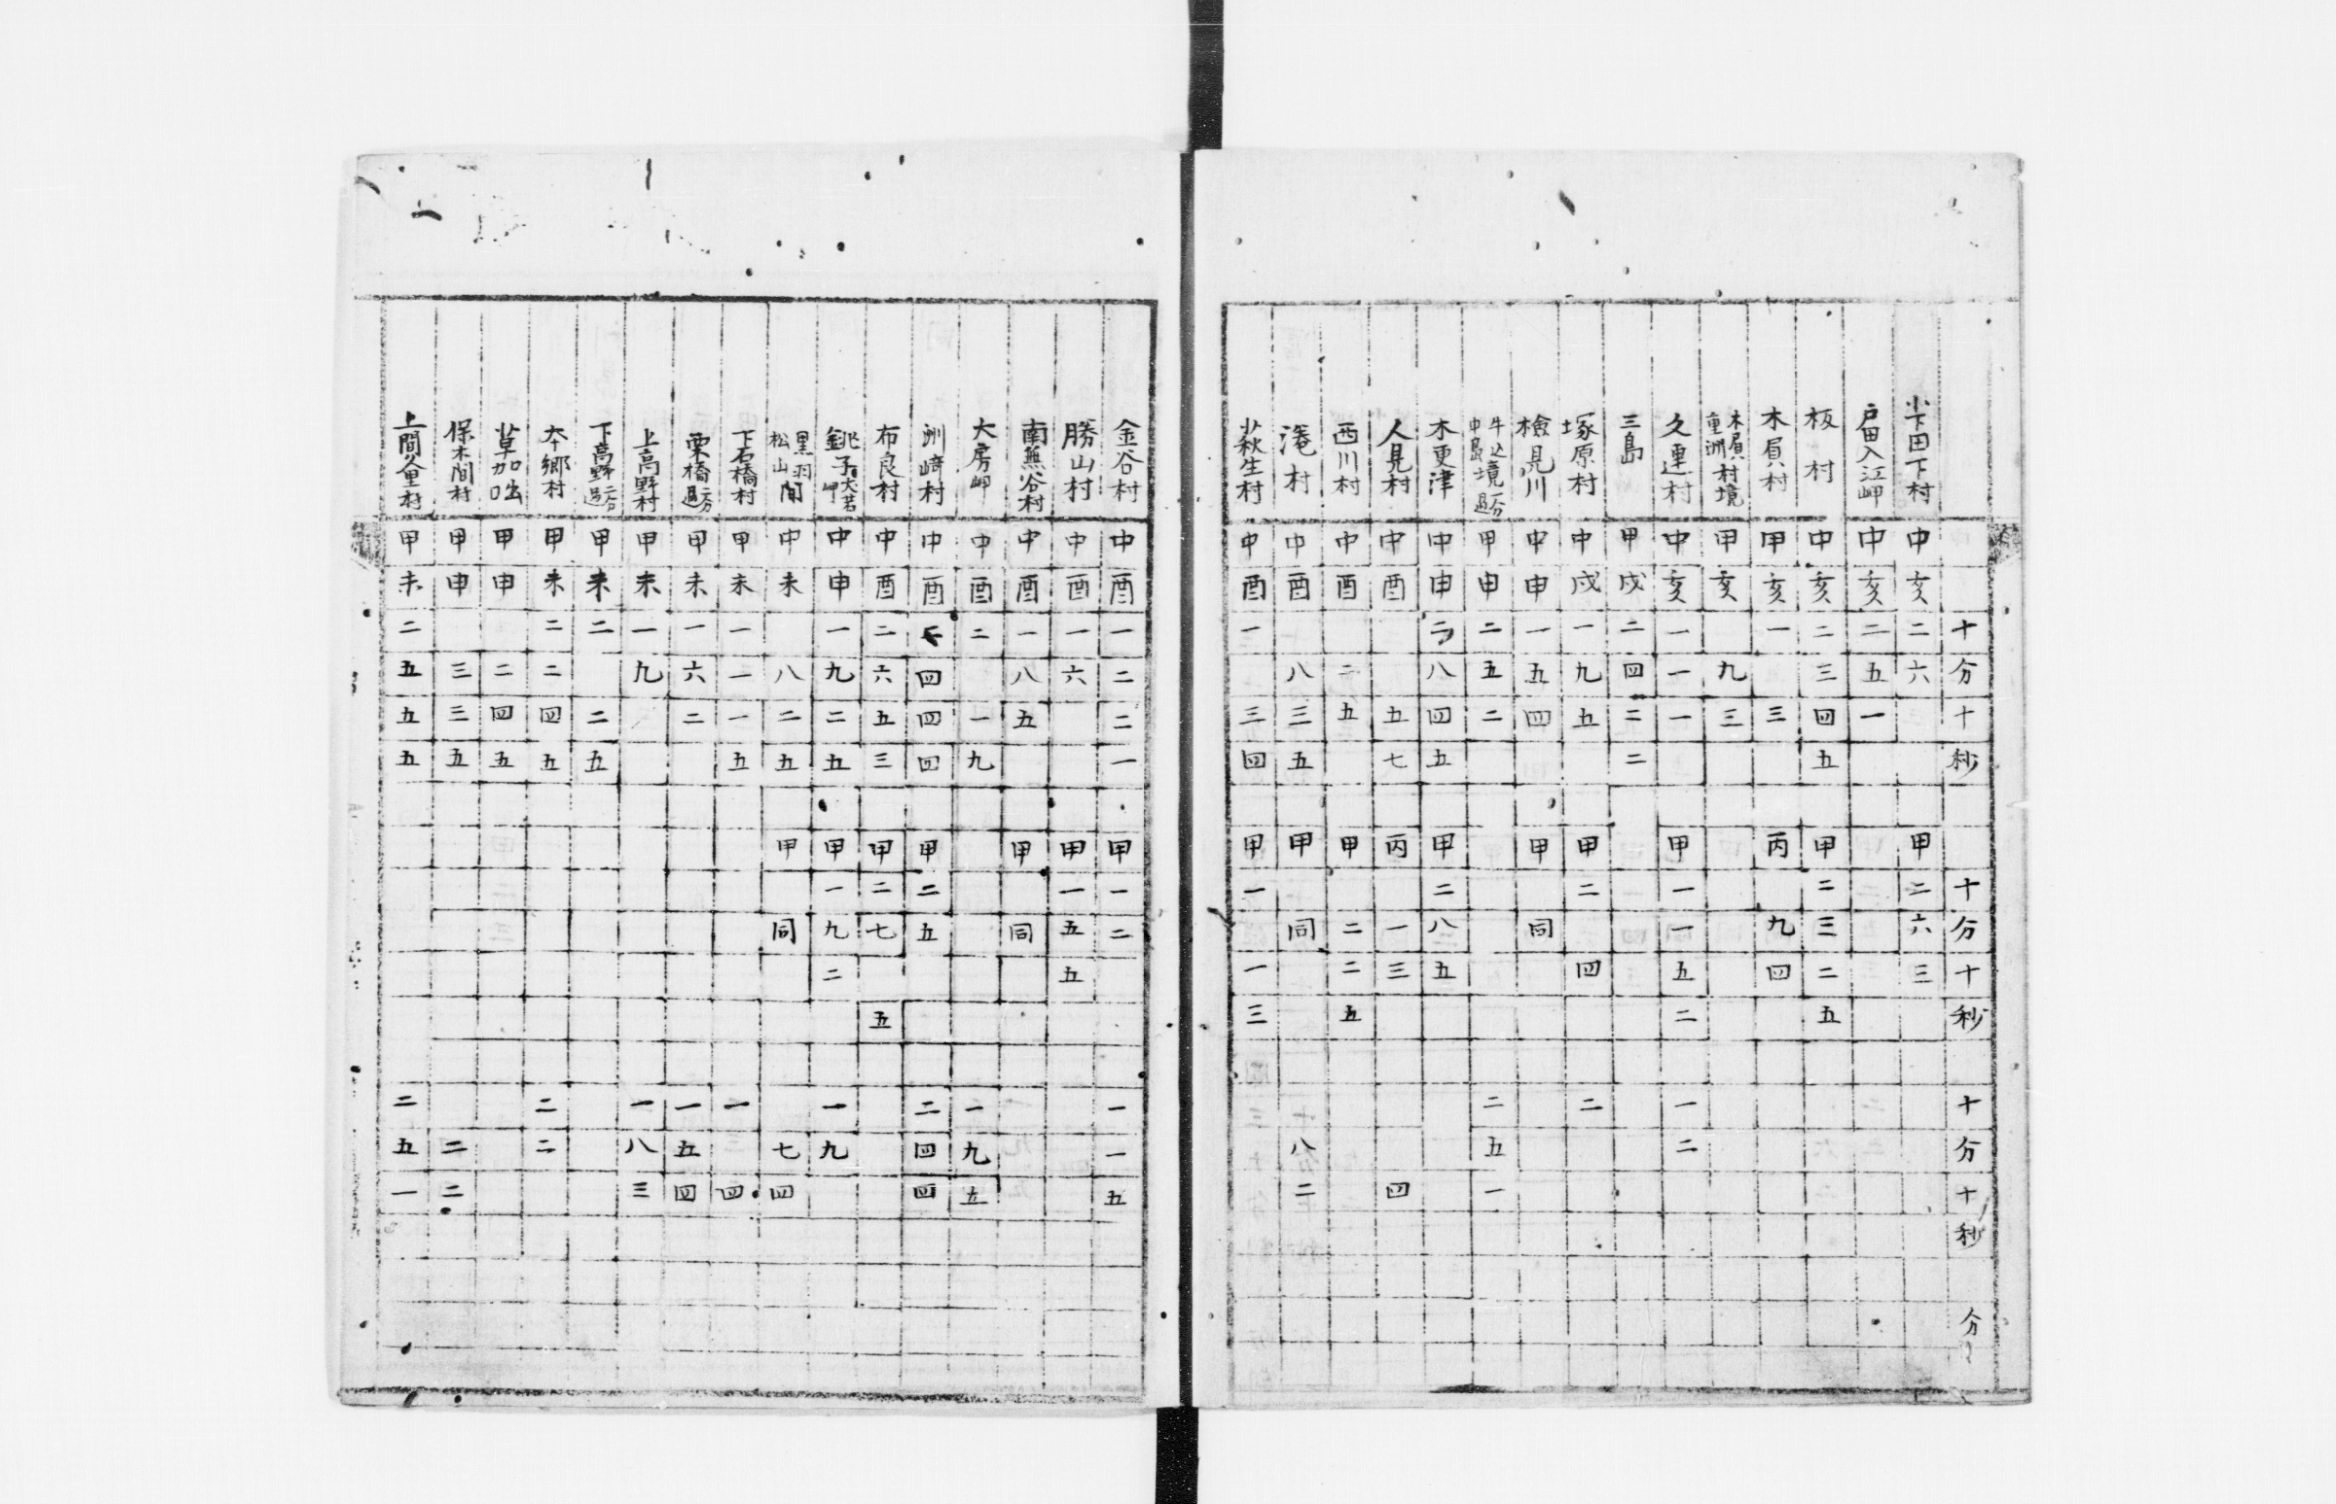 十分十秒 十分十秒 十分十秒 分
小下田下村 中亥二六 甲二六三
戸田入江岬 中亥二五一
板村 中亥二三四五 甲二三二五
木負村 甲亥一三 丙九四
木負重洲村境 甲亥九三
久連村 中亥一一一 甲一一五二 一二
三島 甲戌二四二二
塚原村 中戌一九五 甲二四 二
檢見川 中申一五四 甲同
牛込中島境 甲申二五二 二五一
木更津 中申二八四五 甲二八五
人見村 中酉五七 丙一三 四
西川村 中酉二五 甲二二五
湊村 中酉八三五 甲同 八二
萩生村 中酉一三四 甲一一三
金谷村 中酉一二二一 甲一二 一一五
勝山村 中酉一六 甲一五五
南無谷村 中酉一八五 甲同
大房岬 中酉二一九 一九五
洲﨑村 中酉四四四 甲二五 二四四
布良村 中酉二六五三 甲二七五
銚子岬 中申一九二五 甲一九二 一九
黒羽松山間 中未八二五 甲同 七四
下石橋村 甲未一一一五 一四
栗橋 甲未一六二 一五四
上高野村 甲未一九 一八三
下高野 甲未二二五
本郷村 甲未二二四五 二二
草加 甲申二四五
保木間村 甲申三三五 二二
上間久里村 甲未二五五五 二五一